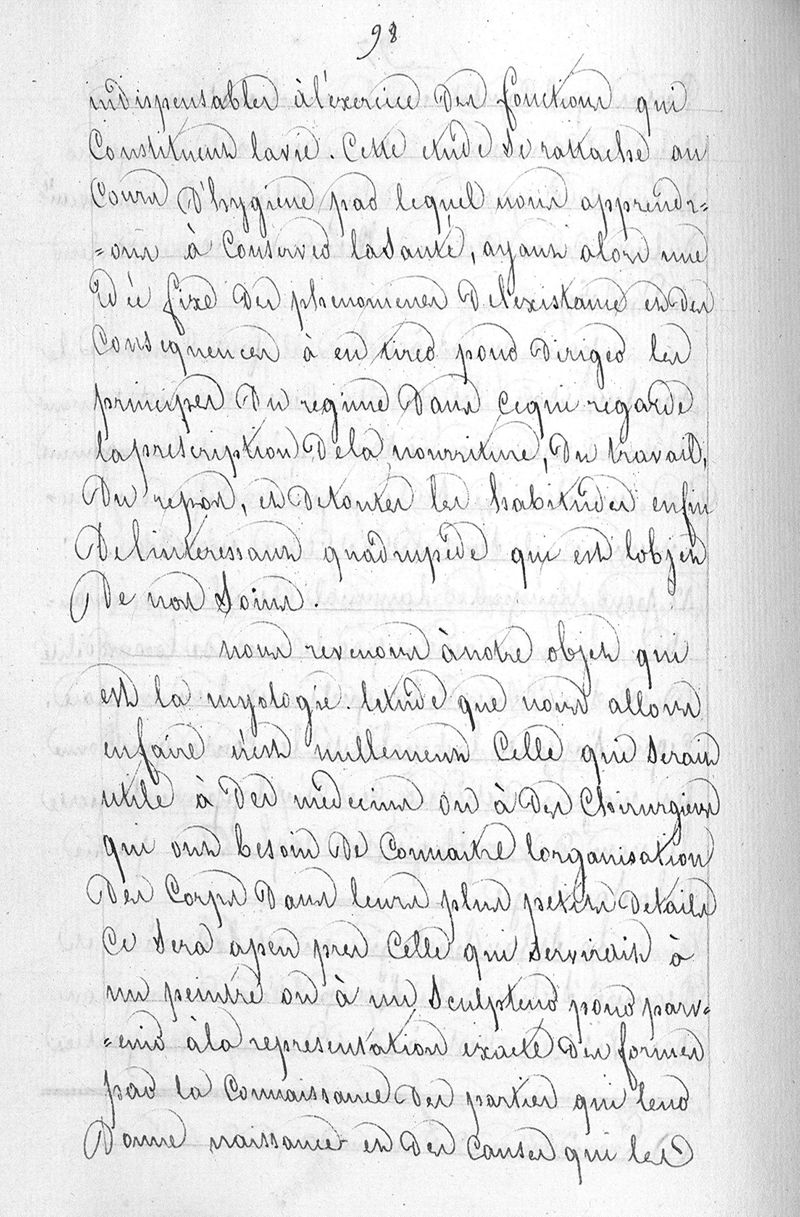 98
indispensables à l'exercice des fonctions qui
Constituent la vie. Cette etude se rattache au
Cours d'hygiene par lequel nous apprendr=
=ons à Conserver la Santé, ayant alors une
Idée fixe des phenomenes de l'existance et des
Consequences à en tirer pour diriger les
principes du regime dans cequi regarde
la prescription de la nourriture, du travail,
du repos, et de toutes les habitudes enfin
de l'intéressant quadrupède qui est l'objet
de nos Soins.
nous revenons à notre objet qui
est la myologie. letude que nous allons
en faire n'est nullement Celle qui Serait
utile à des médecins ou à des Chirurgiens
qui ont besoin de Connaitre lorganisation
des Corps dans leurs plus petits details
Ce Sera apeu pres Celle qui Servirait à
un peintre ou à un Sculpteur pour parv=
=enir à la representation exacte des formes
par la Connaissance des parties qui leur
donne naissance et des Causes qui les